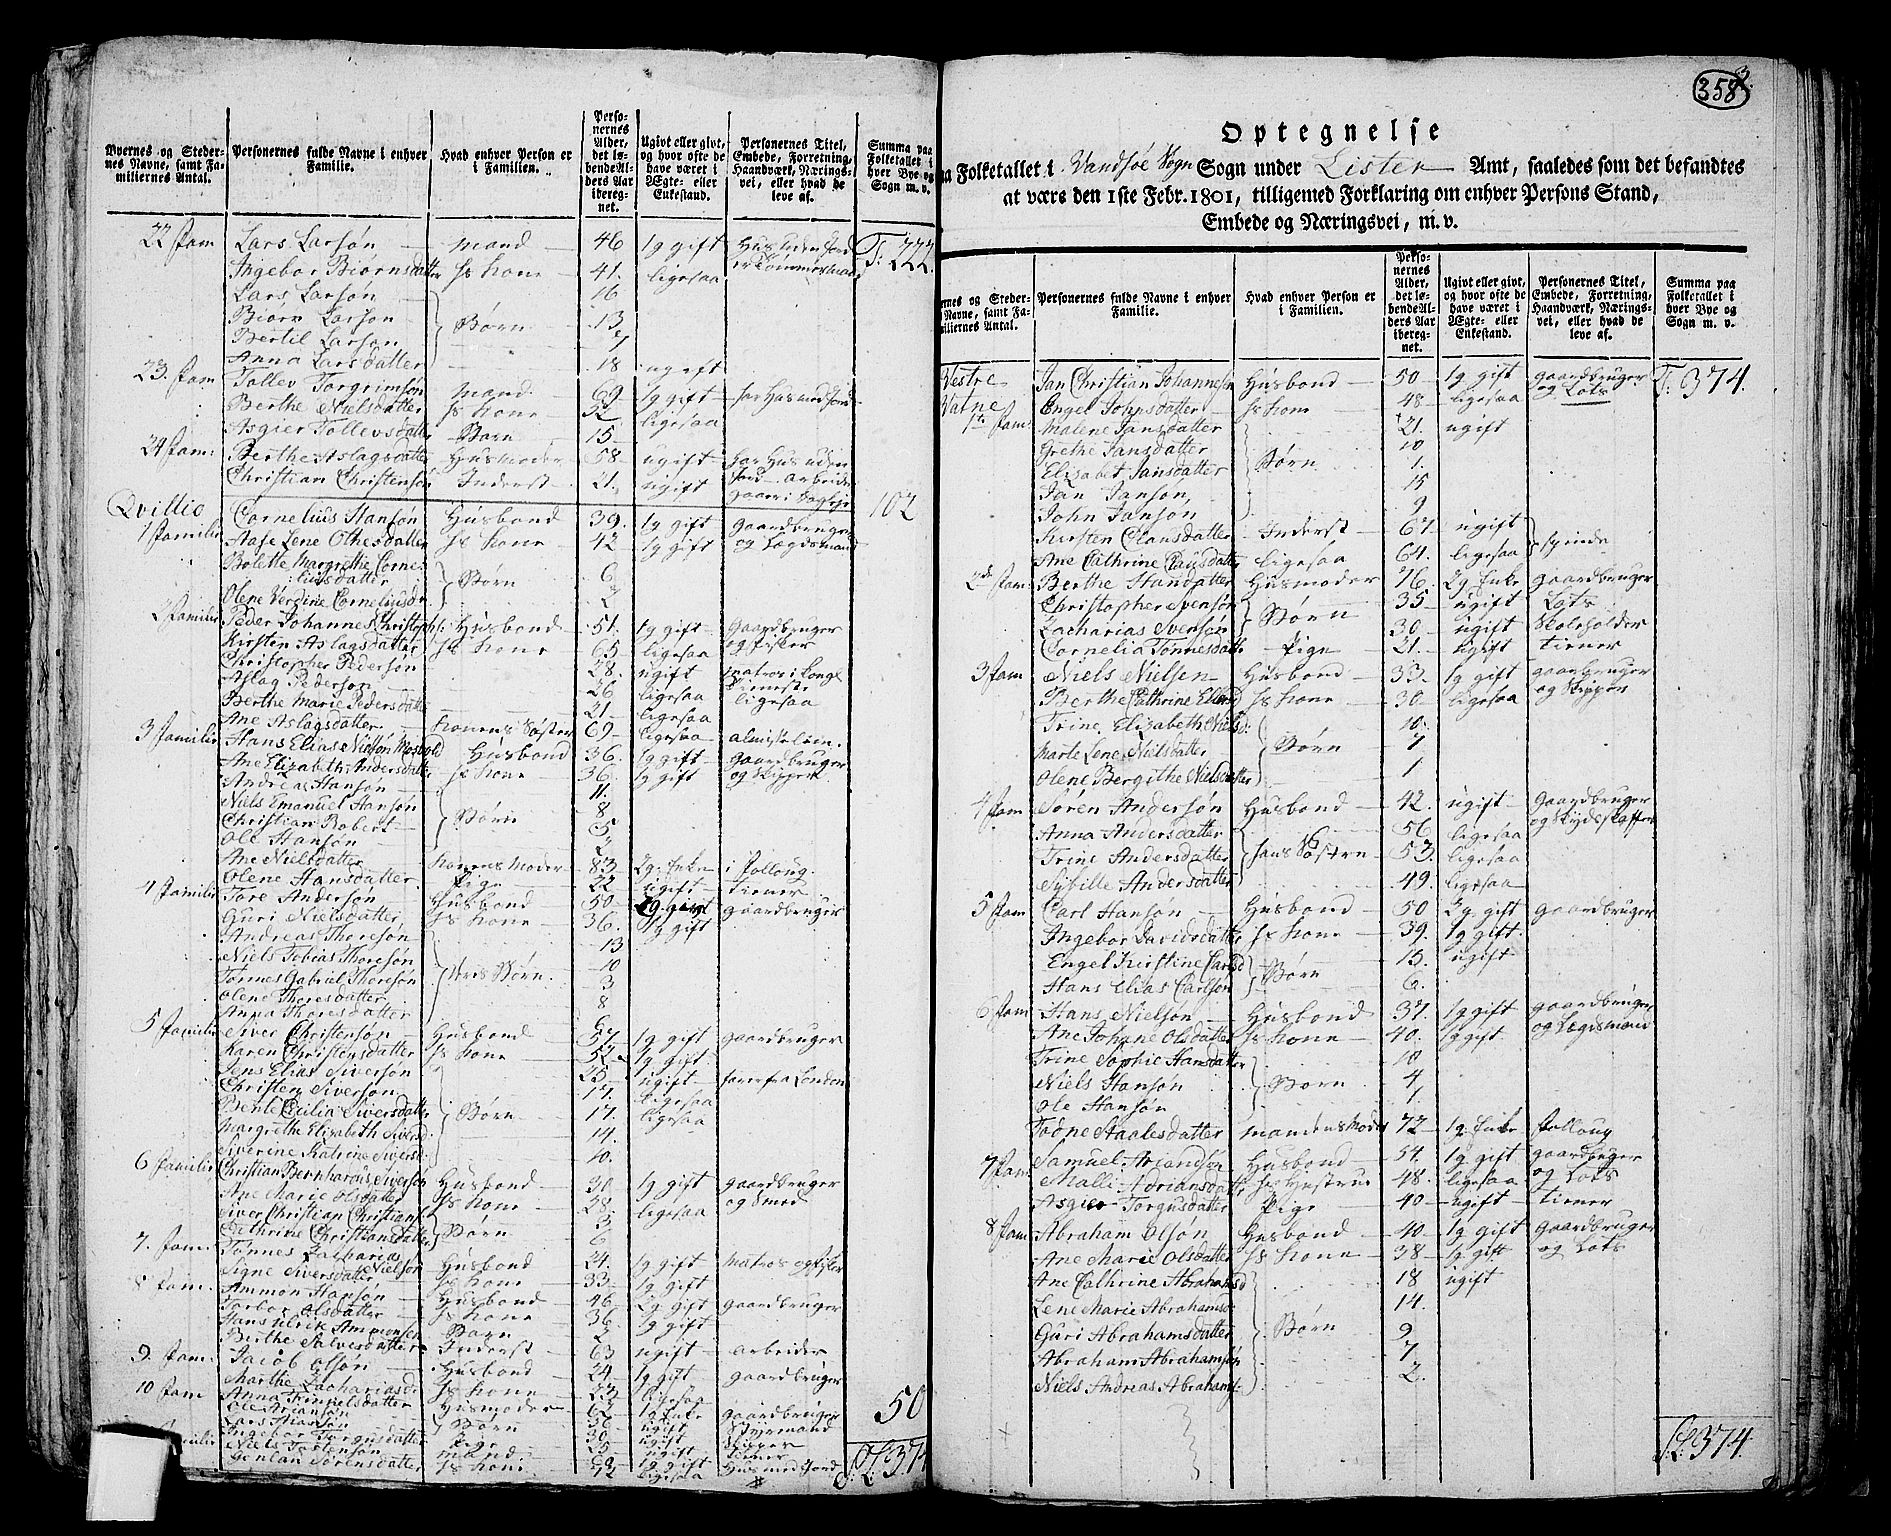 Byernes og Steder-
nes Navne, samt Fa-
miliernes Antal.
Personernes fulde Navne i enhver
Familie.
Hvad enhver Person er
i Familien.
Perso-
nernes
Alder,
det lø-
bende Al-
ders Aar
iberegnet.
Ugivt eller givt,
og hvor ofte de
have været i
Ægte- eller
Enkestand.
Personernes Titel,
Embede, Forretning,
Haandværk, Nærings-
vei, eller hvad de
leve af.
Summa paa
Folketallet i
hver Bye og
Sogn m. v.
22 fam Lars Larsøn mand 46 1g gift Hus uden Jord T: 222.
Ingebor Biørnsdatter hs kone 41. ligesaa
Lars Larsøn 16
Biørn Larsøn Børn 13
Bertil Larsøn
Anna Larsdatter 18 ugift
23. fam Tollev Torgrimsøn mand 69 1g gift har Hus med Jord
Berthe Nielsdatter hs kone ligesaa
Asgier Tollevsdatter Barn 15
24 fam: Berthe Aslagsdatter Husmoder 58 ugift har Hus uden
Christian Christensøn Inderst 21. ugift Jord arbeider
Qvillio 102
1 familie Cornelius Hansøn Husbond 39. 1g gift gaardbruger
Aase Lene Othesdatter hs kone 42 1g gift og Lægdsmand
Bolette Margrethe Corne-
liusdatter Børn 6
Olene Verdine Corneliusdr. 2
2 familie Peder Johannes Christoph: Husbond 51. 1g gift gaardbruger
Kirsten Aslagsdatter hs kone 65 ligesaa og fisker
Christopher Pedersøn 28. ugift matros i kongl
Aslag Pedersøn 26 ligesaa tieneste
Berthe Marie Pedersdatter 21 ligesaa ligesaa
Ane Aslagsdatter konens Søster 69 ligesaa almisselem.
3 familie Hans Elias Nielsøn Husbond 36. 1g gift gaardbruger
Ane Elizabeth Andersdatter hs kone 36. 1g gift og Skipper
Andreas Hansøn 11.
Niels Emanuel Hansøn Børn 8
Christian Robert 5
Ole Hansøn 2
Ane Nielsdatter konens moder 83 2g. Enke i folloug.
Olene Hansdatter. Pige 22 ugift tiener
4 familie Tore Andersøn Husbond 50 2g. gift gaardbruger
Guri Nielsdatter hs kone 36. 1g gift
Andreas Thoresøn 13
Niels Tobias Thoresøn 10
Tønnes Gabriel Thoresøn Børn. 3
Olene Thoresdatter 8
Anna Thoresdatter 6
5 familie Siver Christensøn Husbond 57 1g gift gaardbruger
Karen Christensdatter hs kone 52 1g gift
Jens Elias Siversøn 25 ugift farer fra London
Christen Siversøn ligesaa
Bente Cecilia Siversdatter Børn 17. ligesaa
Margrethe Elizabeth Siversd. 14.
Siverine Katrine Siversd: 10.
6 familie Christian Bernhardus Siversøn Husbond 1g gift gaardbruger
Ane Marie Olsdatter hs kone 28. ligesaa og Smed
Siver Christian Christians 3
Cathrine Christiansdatter Børn 6
7. fam: Tønnes Zacharias
Nielsøn Husbond 24. 1g gift matros og fisker
Signe Siversdatter hs kone 33 1g gift
8 fam: Ammon Hansøn Husbond 46 2g gift gaardbruger
Torbor Olsdatter hs kone 36. 1g gift
Hans Ulrik Ammonsen Barn 2
Berthe Salvesdatter Inderst 63 ugift arbeider
9. fam. Jacob Olsøn Husbond 24 1g gift gaardbruger
Marthe Zachariasd. hs kone 23 ligesaa
10 fam Anna Trinnelsdatter Husmoder 62 1g Enke gaardbruger 50
Børn ugift Styrmand
Ingebor Torgusdatter Pige 25 ugift tiener
Niels Torlensøn mand 1g gift Husmed Jord
Gonlan Sørensdatter hs kone 72 ligesaa
S. L. 374
358
Optegnelse
paa Folketallet i Vandsøe Sogn Sogn under Lister Amt, saaledes som det befandtes
at være den 1ste Febr. 1801, tilligemed Forklaring om enhver Persons Stand,
Embede og Næringsvei, m. v.
Byernes og Steder-
nes Navne, samt Fa-
miliernes Antal.
Personernes fulde Navne i enhver
Familie.
Hvad enhver Person er
i Familien.
Perso-
nernes
Alder,
det lø-
bende Al-
ders Aar
iberegnet.
Ugivt eller givt,
og hvor ofte de
have været i
Ægte- eller
Enkestand.
Personernes Titel,
Embede, Forretning,
Haandværk, Nærings-
vei, eller hvad de
leve af.
Summa paa
Folketallet i
hver Bye og
Sogn m. v.
Vestre Jan Christian Johannesen Husbond 50 1g gift gaardbruger T: 374.
Vatne Engel Johnsdatter hs kone 48 ligesaa og Lots
1te fam Malene Jansdatter 21. ugift
Grethe Jansdatter 10
Elizabet Jansdatter Børn 1.
Jan Jansøn 15
John Jansøn 9
Kirsten Clausdatter Inderst 67 ugift
Ane Cathrine Clausdatter ligesaa 64. ligesaa spinde
2de fam Berthe Hansdatter Husmoder 76. 2g Enke gaardbruger
Christopher Svensøn 35 ugift Lots
Zacharias Svensøn Børn 30 ugift Skoleholder
Cornelia Tønnesdatt. Pige 21. ugift tiener
3 fam Niels Nielsen Husbond 33. 1g gift gaardbruger
Berthe Cathrine hs kone 30. ligesaa og Skipper
Trine Elizabeth Nielsd: 10.
Marte Lene Nielsdatter Børn 7
Olene Bergithe Nielsdatter 1
4 fam Søren Andersøn Husbond 42. ugift gaardbruger
Anna Andersdatter 56 ligesaa og Skydsskaffer
Trine Andersdatter hans Søstre 53. ligesaa
Sybille Andersdatter 49. ligesaa
5 fam Carl Hansøn Husbond 50 2g. gift gaardbruger
Ingebor Davidsdatter hs kone 39. 1g gift
Engel Kirstine Carlsd Børn 15. ugift
Hans Elias Carlsøn 6.
6 fam Hans Nielsøn Husbond 37. 1g gift gaardbruger
Ane Johane Olsdatter hs kone 40. 1g gift og Lægdsmand
Trine Sophie Hansdatter 10
Niels Hansøn Børn 4
Ole Hansøn 1.
Tadne Staalesdatter mandens moder 72 1g. Enke folloug
7 fam Samuel Ariansøn Husbond 54. 1g gift gaardbruger
Malli Adriansdatter hs Hustrue 48. ligesaa og Lots
Asgier Torgusdatter Pige 40 ugift tiener
8 fam Abraham Olsøn Husbond 40 1g gift gaardbruger
Ane Marie Olsdatter hs kone 38 1g gift og Lots
Ane Cathrine Abrahamsd 18 ugift
Lene Marie Abrahamsd 14.
Guri Abrahamsdatter Børn 9
Abraham Abrahamsøn 7
Niels Andreas Abrahamss. 2.
S. L. 374.